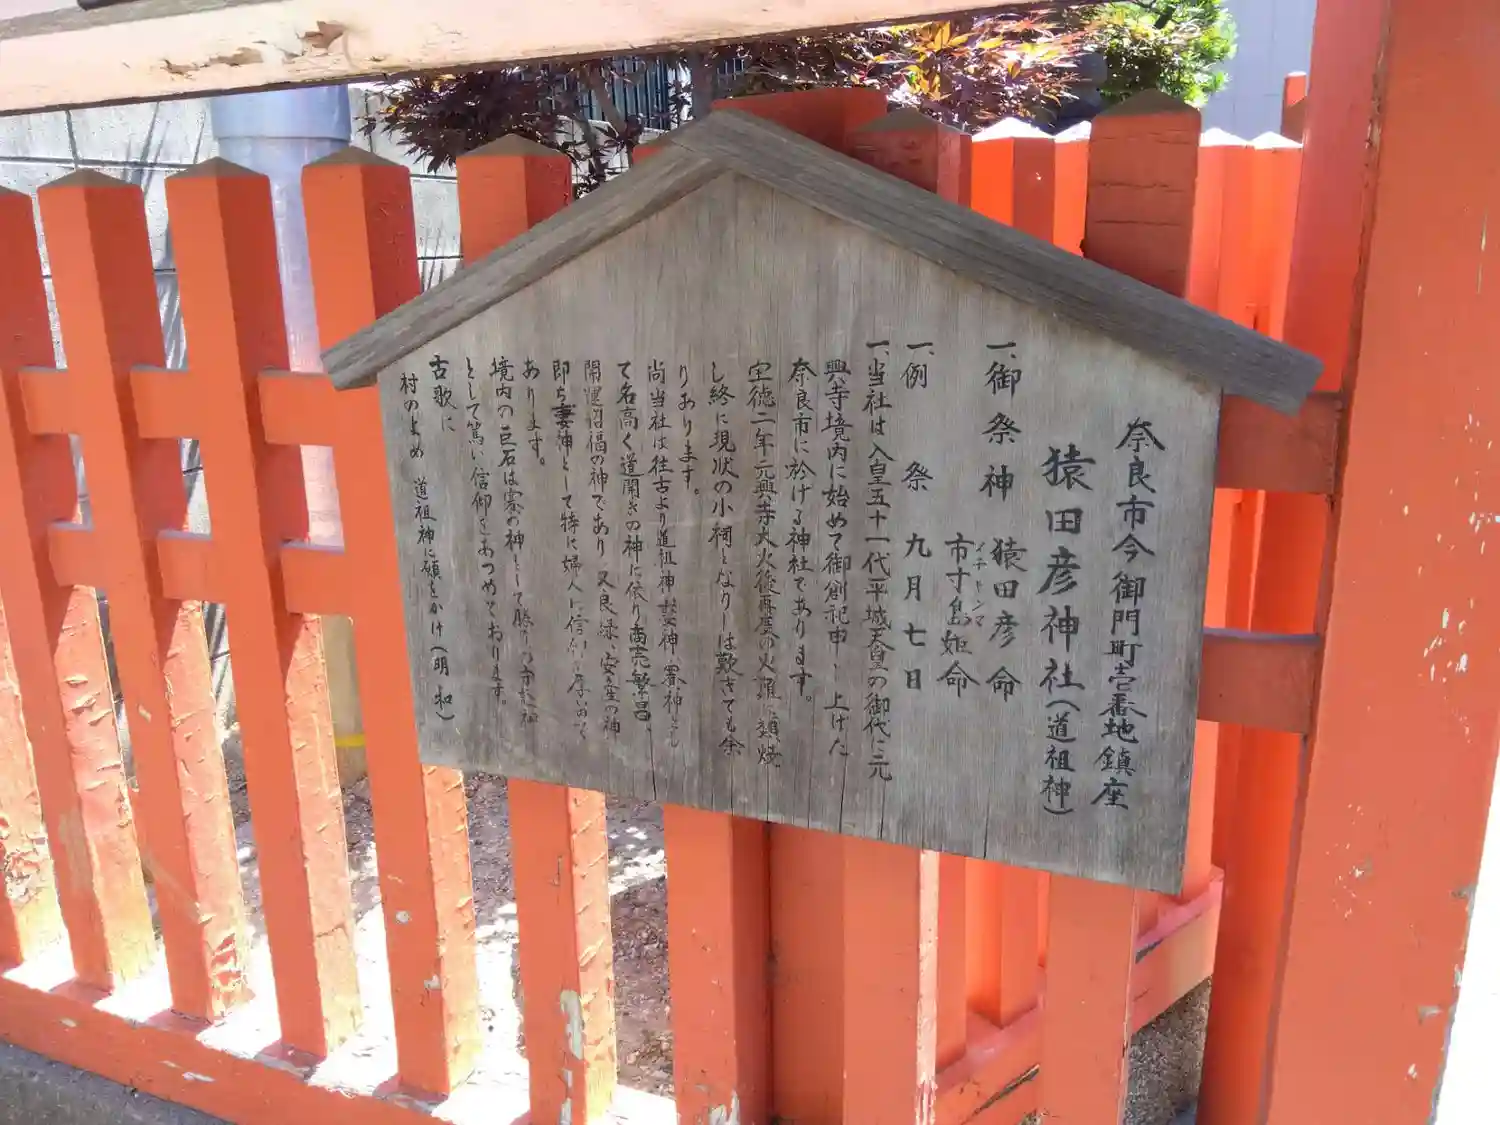 奈良市今御門町壱番地鎮座
猿田彦神社（道祖神）
一、御祭神 猿田彦命
市寸島姫命
イチキシマ
一、例祭 九月七日
一、当社は人皇五十一代平城天皇の御代に元
興寺境内に始めて御創祀申し上げた
奈良市に於ける神社であります。
宝徳二年元興寺大火後再度の火難に類焼
し終に現状の小祠となりしは歎きても余
りあります。
尚当社は往古より道祖神
て名高く道開きの神に依り商売繁昌、
開運招福の神であり又良縁、安産の神
即ち妻神として特に婦人に信仰厚
あります。
境内の巨石は賽の神として勝
として篤い信仰をあつめております。
古歌に
村のよめ 道祖神に願をかけ（明和）